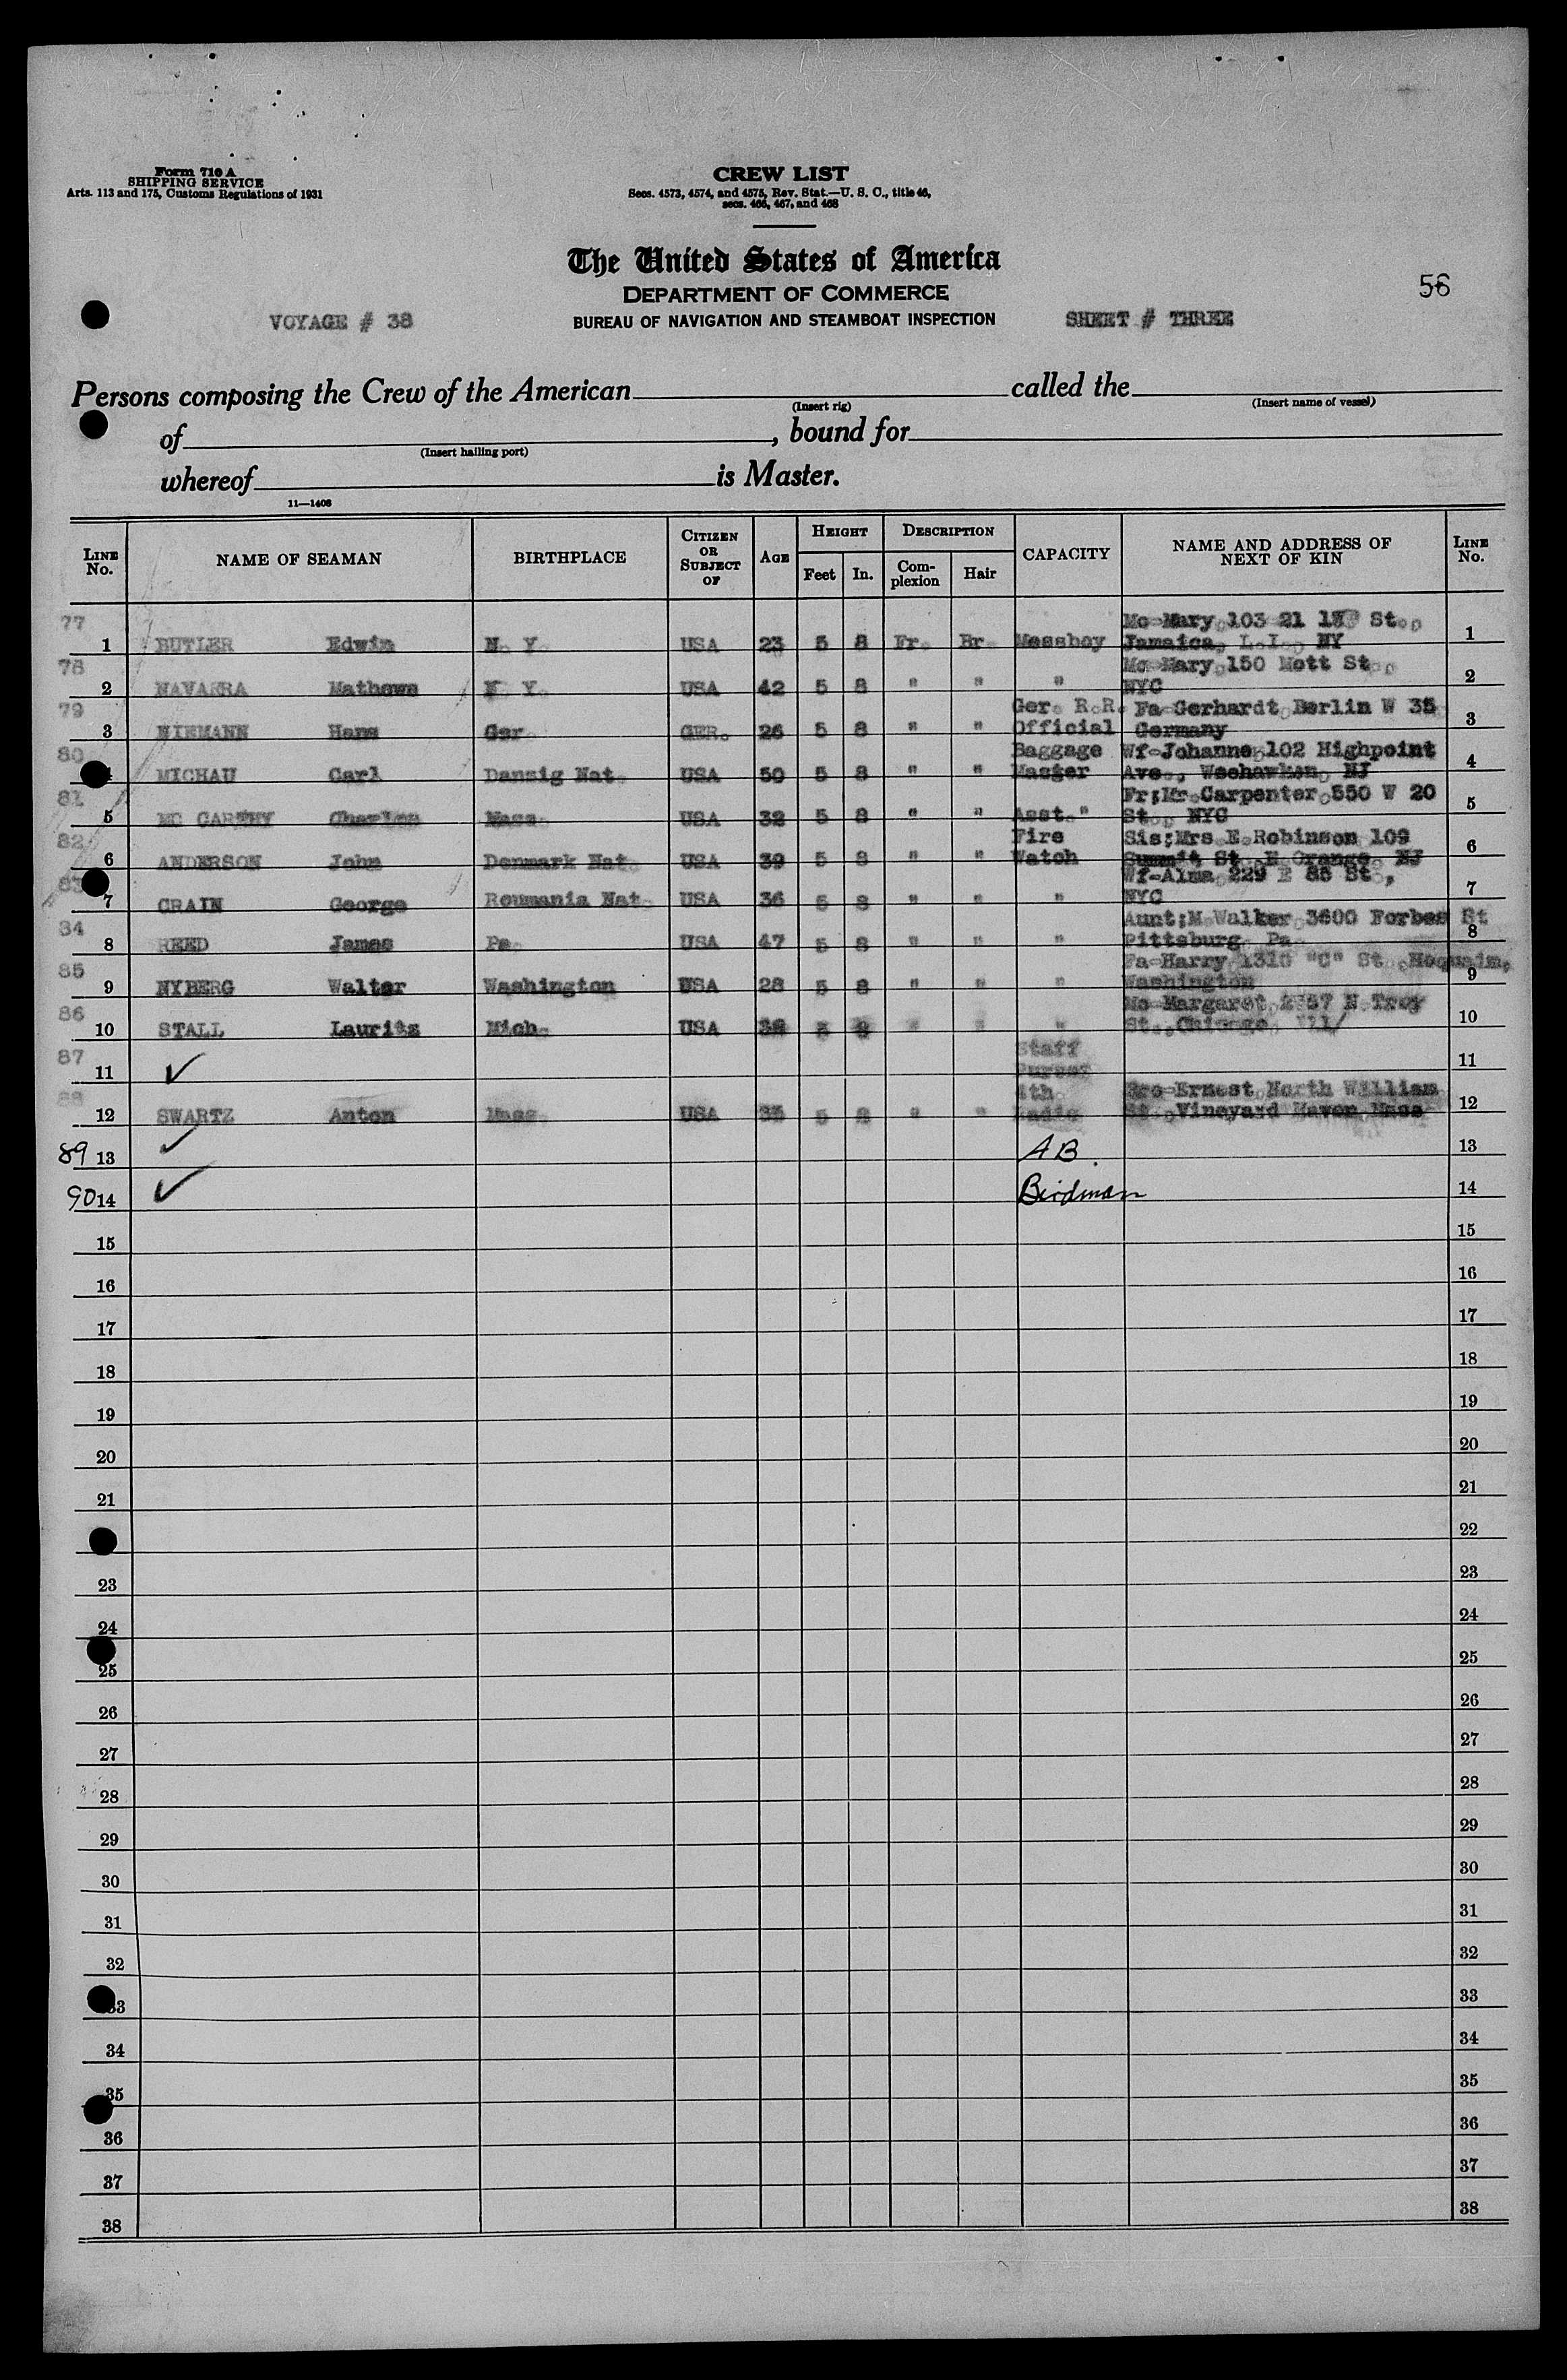 Form 710 A
SHIPPING SERVICE
Arts. 113 and 175, Customs Regulations of 1931
CREW LIST
Secs. 4573, 4574, and 4575, Rev. Stat.—U. S. C., title 46,
secs. 466, 467, and 468
The United States of America
DEPARTMENT OF COMMERCE
BUREAU OF NAVIGATION AND STEAMBOAT INSPECTION
56
VOYAGE # 38
SHEET # THREE
Persons composing the Crew of the American called the
(Insert rig) (Insert name of vessel)
of , bound for
(Insert hailing port)
whereof is Master.
11—1408
LINE No. NAME OF SEAMAN BIRTHPLACE CITIZEN OR SUBJECT OF AGE HEIGHT Feet In. DESCRIPTION Complexion Hair CAPACITY NAME AND ADDRESS OF NEXT OF KIN LINE No.
77 Mo-Mary, 103 21 St.,
1 BUTLER Edwin N. Y. USA 23 5 8 Fr. Br. Messboy Jamaica, L.I., NY 1
78 Mo-Mary, 150 Mott St.,
2 NAVARRA Mathews N. Y. USA 42 5 8 " " " NYC 2
79 Ger. R.R. Fa-Gerhardt, Berlin W 35
3 NIEMANN Hans Ger. GER. 26 5 8 " " Official Germany 3
80 Baggage Wf-Johanne, 102 Highpoint
4 MICHAU Carl Danzig Nat. USA 50 5 8 " " Master Ave., Weehawken, NJ 4
81 Fr;Mr.Carpenter, 550 W 20
5 MC CARTHY Charles Mass. USA 32 5 8 " " Asst. " St., NYC 5
82 Fire Sis;Mrs.E.Robinson 109
6 ANDERSON John Denmark Nat. USA 39 5 8 " " Watch Summit St., E Orange, NJ 6
83 Wf-Alma, 229 E 85 St.,
7 CRAIN George Roumania Nat. USA 36 5 8 " " " NYC 7
84 Aunt;M.Walker, 3600 Forbes St
8 REED James Pa. USA 47 5 8 " " " Pittsburg, Pa. 8
85 Fa-Harry, "C" St.,
9 NYBERG Walter Washington USA 28 5 8 " " " Washington 9
86 Mo-Margaret, N.Troy
10 STALL Lauritz Mich. USA 5 8 " " " St., Chicago, Ill/ 10
87 Staff
11 ✓ Purser 11
88 4th Bro-Ernest, North William
12 SWARTZ Anton Mass. USA 35 5 8 " " Radio St., Vineyard Haven, Mass 12
89 13 ✓ AB. 13
90 14 ✓ Birdman 14
15 15
16 16
17 17
18 18
19 19
20 20
21 21
22
23 23
24 24
25 25
26 26
27 27
28 28
29 29
30 30
31 31
32 32
33 33
34 34
35 35
36 36
37 37
38 38